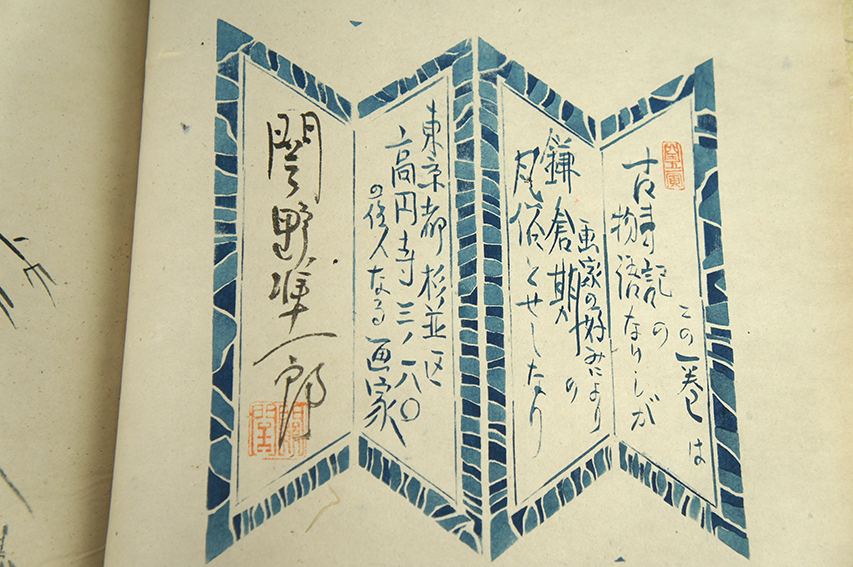 この一巻は
古事記の
物語なりしが
画家の好みにより
鎌倉期の
風俗とせしなり
東京都杉並区
高円寺三ノ一八〇
の住人なる画家
関野凖一郎